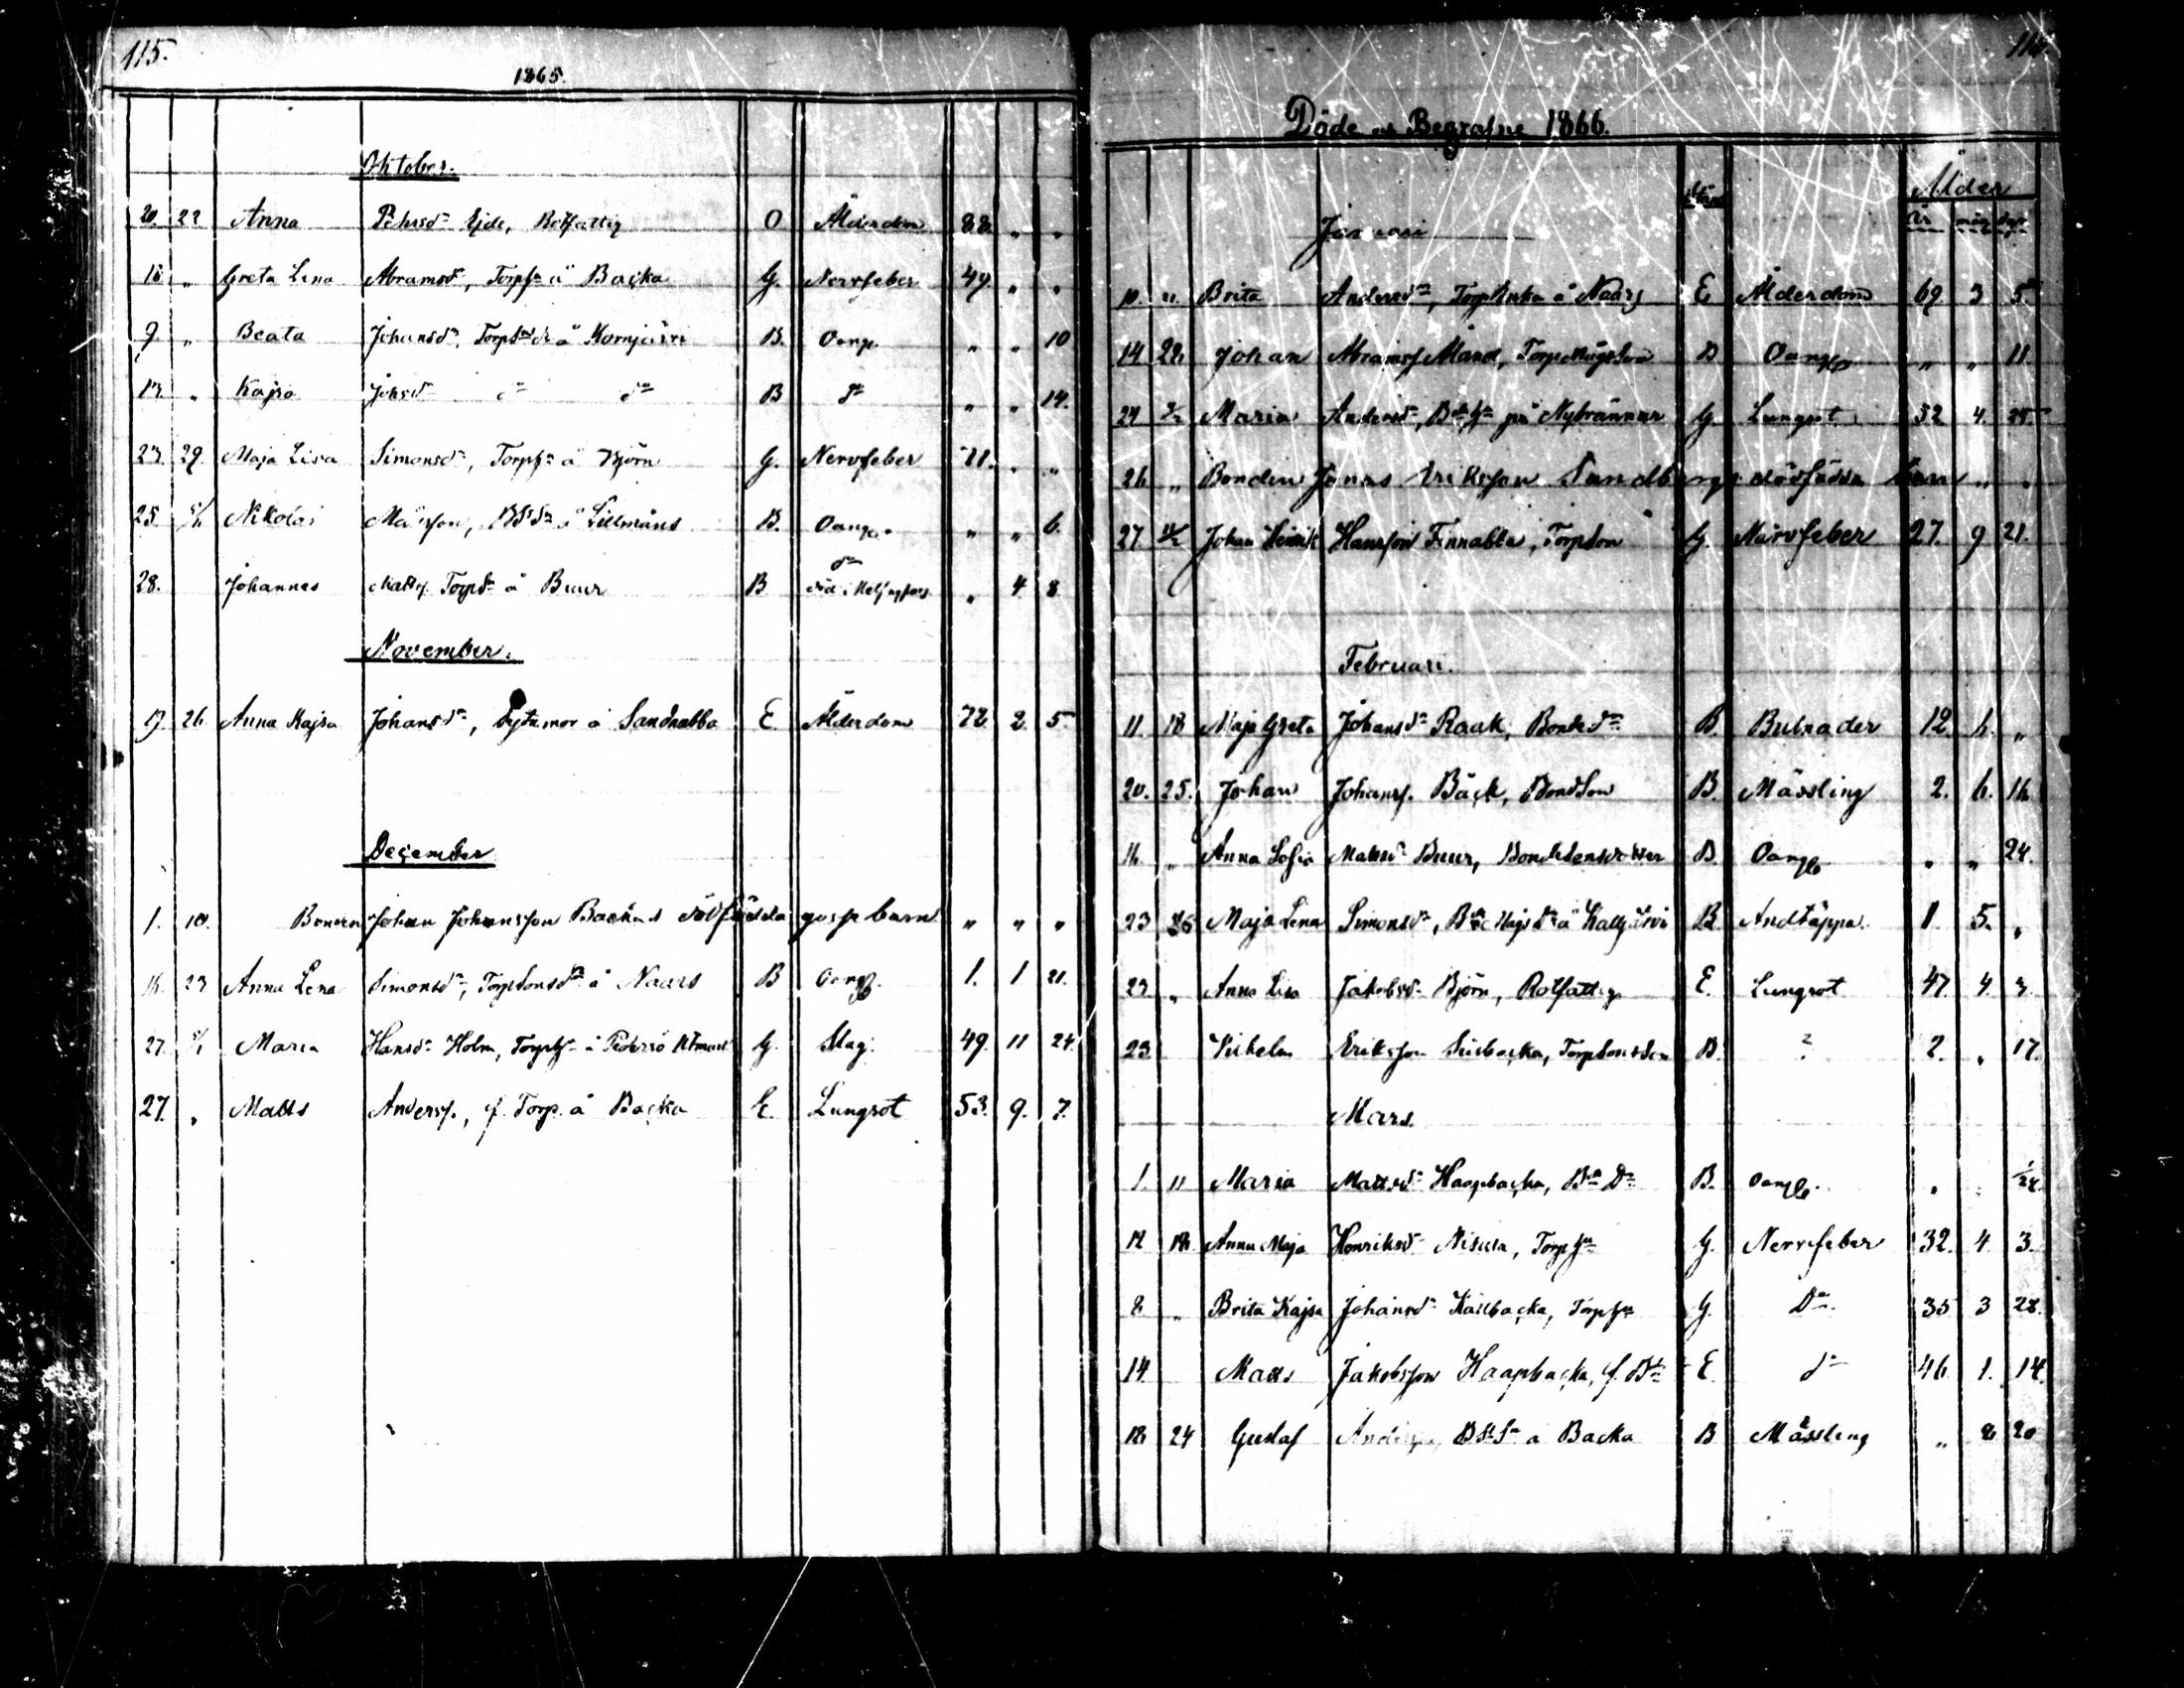 115.
1865.
Oktober.
20. 22 Anna Pehrsdr Ejde, Rotfattig O Ålderdom 88. „ „
18. „ Greta Lena Abramsdr, Torphu å Backa G. Nervfeber 49. „ „
9. „ Beata Johansdr, å Kornjärvi B. Oang. „ „ 10
13. „ Kajsa Johsdr do do B do „ „ 14.
23. 29. Maja Lisa Simonsdr, Torphu å Björn G. Nervfeber „ „
25. Nikolai Mårsson, å Lillmåns B. Oang. „ „ 6.
28. Johannes Matts. å Buur B do död i Helsingfors „ 4 8
November.
19. 26 Anna Kajsa Johansdr, Sytamor å Sandnabba E Ålderdom 72. 2. 5.
December
1. 10. Bonden Johan Johansson Backas dödfödda gossebarn „ „ „
16. 23 Anna Lena Simonsdr, Torpsonsdr å Naars B Oang. 1. 1 21.
27. Maria Hansdr Holm, Torphu å Pedersö G. Slag. 49. 11 24.
27. „ Matts Anders., f. Torp. å Backa E. Lungsot 53. 9. 7.
Döde och Begrafne 1866.
Ålder
år mån dag
Januari
10. 21. Brita Andersdr, Torpenka å Naars E Ålderdom 69 3 5
14 28. Johan Abrams. Månd, Torpmågson B Oang. „ „ 11.
24 Maria Andersdr, på Nybrännar G. Lungsot 52 4. 25
26 „ Bonden Jonas Eriksson Sandbergs dödfödda barn „ „
27 Johan Henrik Hansson Finnabba, Torpson G. Närvfeber 27. 9 21.
Februari.
11. 18 Maja Greta Johansdr Raak, Bondedr B. Bulnader 12. 6. „
20. 25. Johan Johans. Bäck, Bondson B. Mässling 2. 6. 16
16 „ Anna Sofia Mattsdr Buur, Bondesonsdotter B Oang. „ „ 24.
23 25 Maja Lena Simonsdr, å Kalljärvi B. Andtäppa. 1. 5. „
23. „ Anna Lisa Jakobsdr Björn, Rotfattig E. Lungsot 47. 4. 3.
23 Vilhelm Eriksson Sisbacka, Torpsonsson B. ? 2. „ 17.
Mars.
1. 11 Maria Mattsdr Haapbacka, Bn Dr B. Oang. „ „ 1/24
12 18. Anna Maja Henriksdr Nisula, Torphu G. Nervfeber 32. 4. 3.
8. „ Brita Kajsa Johansdr Källbacka, Torphu G. Do. 35 3 28.
14. Matts Jakobsson Haapbacka, f. Bde E do 46 1. 14.
18. 24 Gustaf å Backa B Mässling „ 8 20